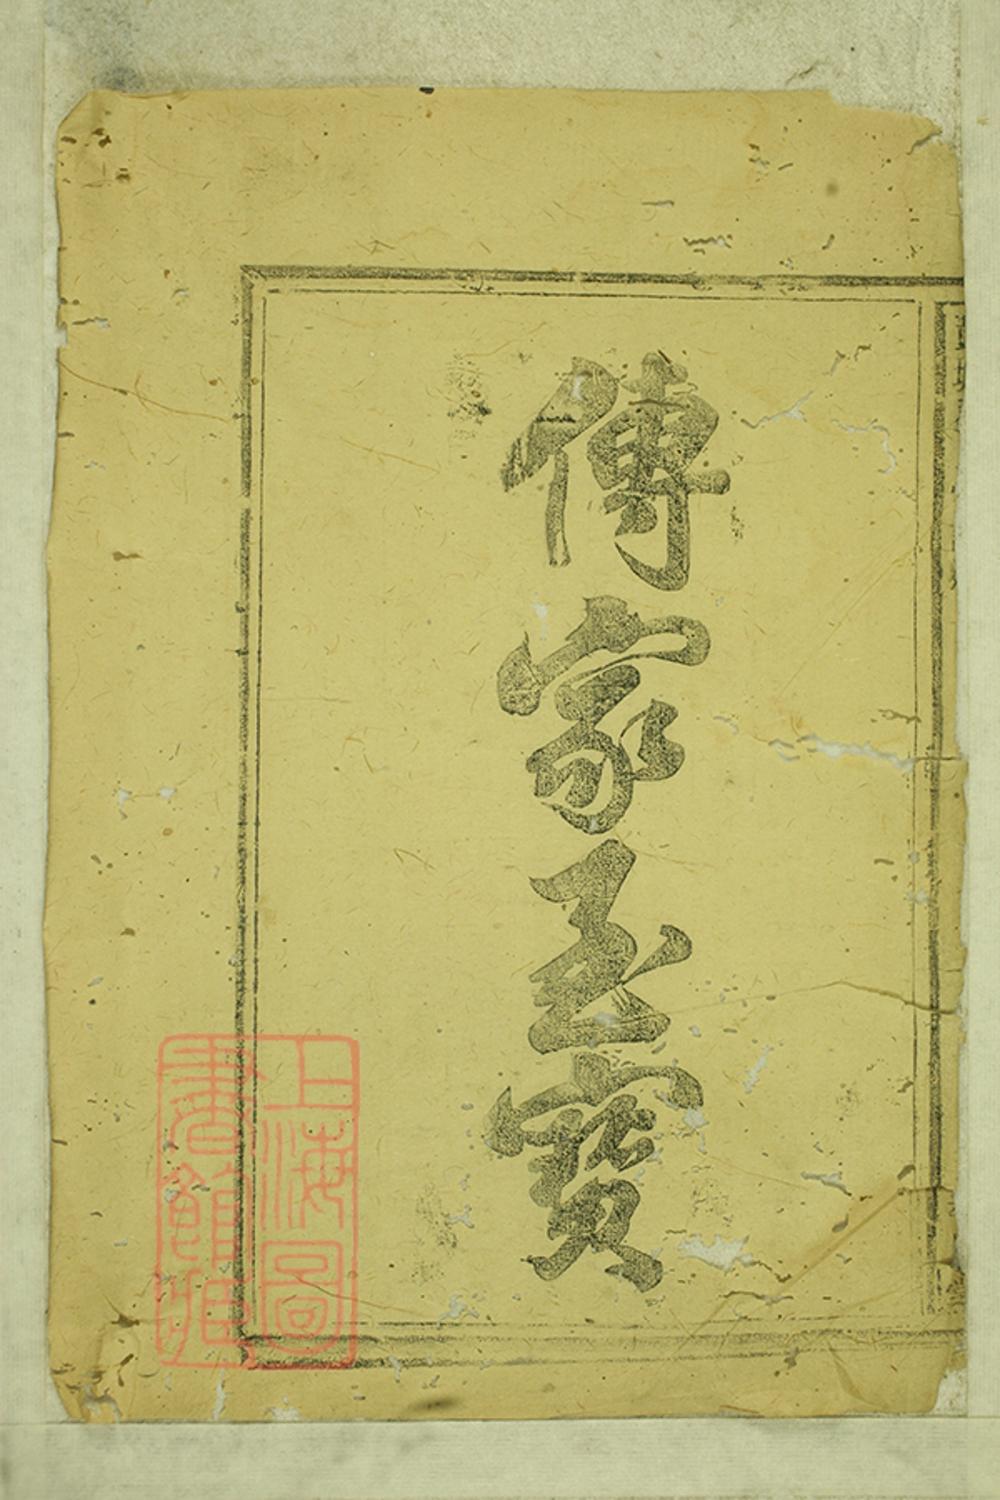 傳家至寶
上海圖
書館藏